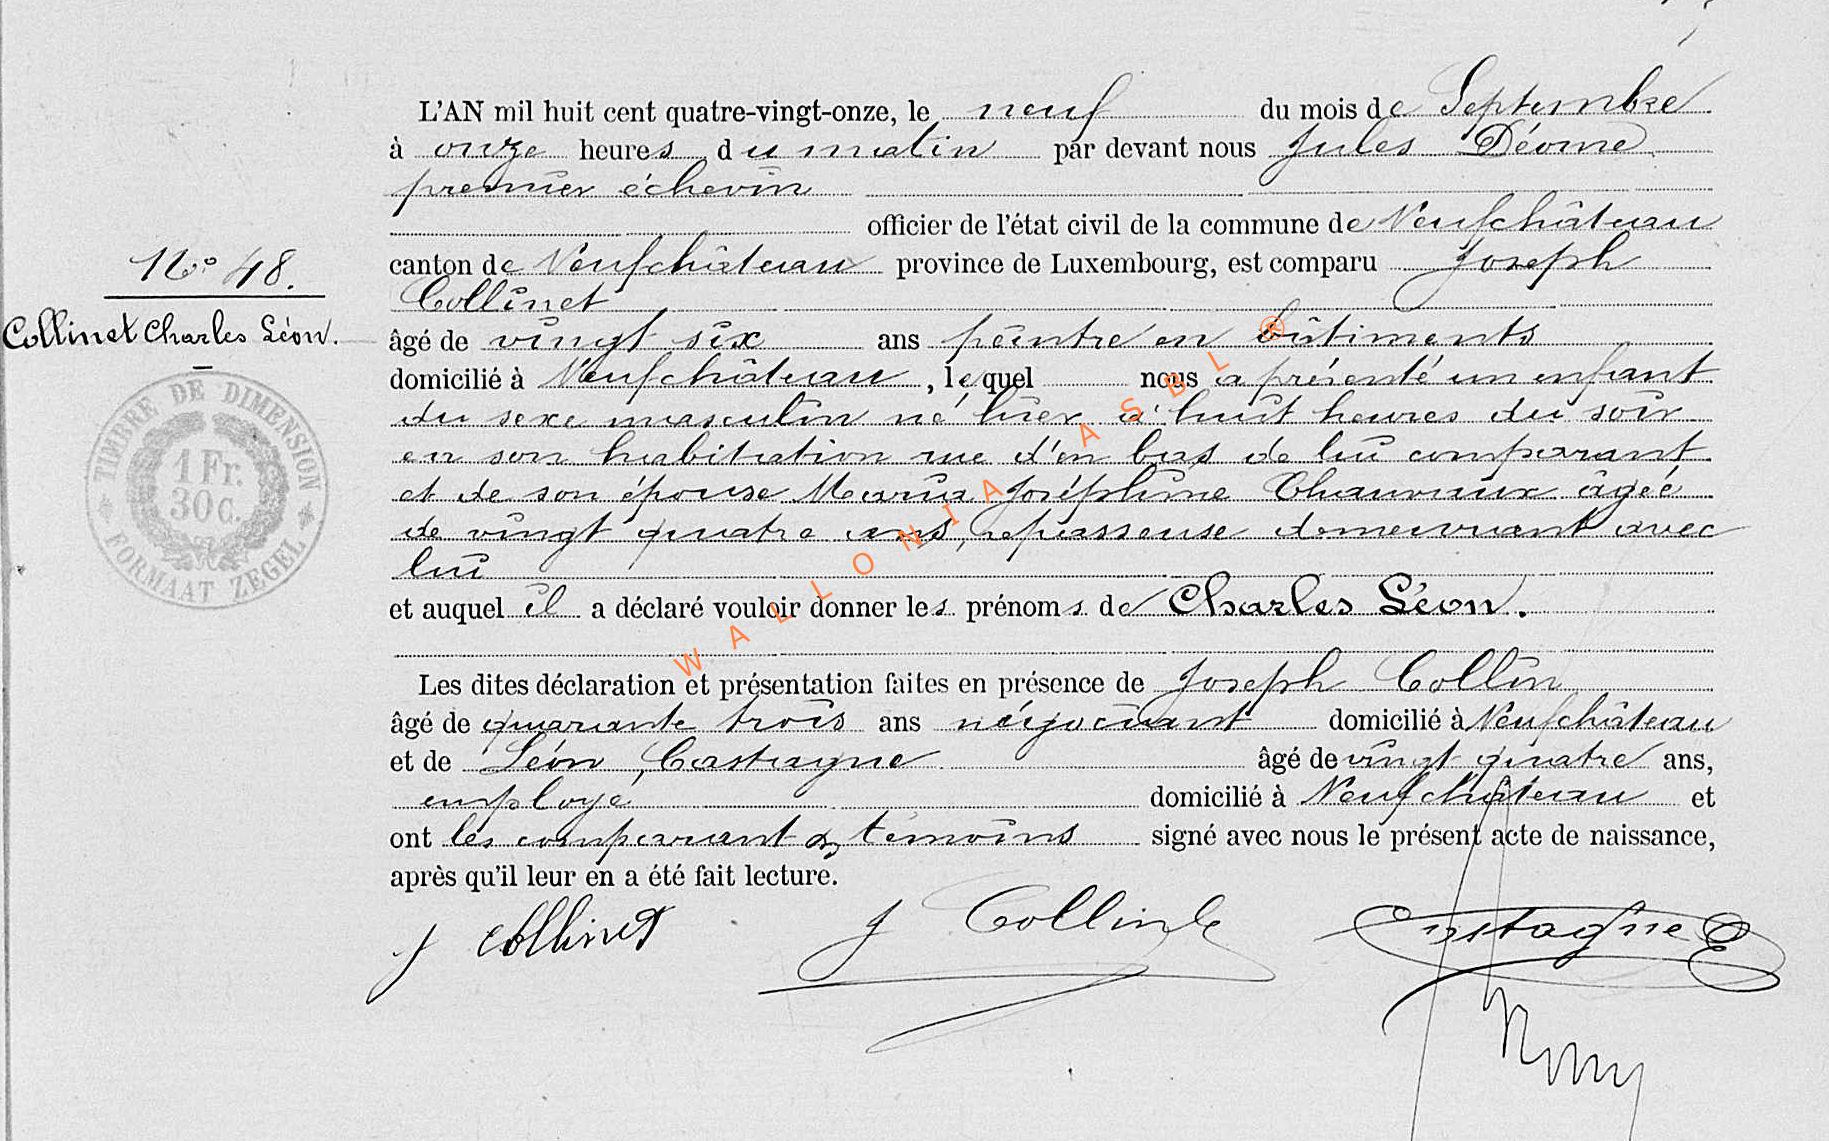 L'AN mil huit cent quatre-vingt-onze, le neuf du mois de Septembre
à onze heures du matin par devant nous Jules Déome
premier échevin
officier de l'état civil de la commune de Neufchâteau
N° 48.
canton de Neufchâteau province de Luxembourg, est comparu Joseph
Collinet
Collinet Charles Léon.
âgé de vingt six ans peintre en bâtiments
domicilié à Neufchâteau, lequel nous a présenté un enfant
du sexe masculin né hier à huit heures du soir
en son habitation rue d'en bas de lui comparant
et de son épouse Maria Joséphine Chauvaux âgée
de vingt quatre ans, repasseuse demeurant avec
lui
TIMBRE DE DIMENSION
1 Fr.
30 c.
FORMAAT ZEGEL
et auquel il a déclaré vouloir donner les prénoms de Charles Léon.
Les dites déclaration et présentation faites en présence de Joseph Collin
âgé de quarante trois ans négociant domicilié à Neufchâteau
et de Léon Castagne âgé de vingt quatre ans,
employé domicilié à Neufchâteau et
ont les comparant & témoins signé avec nous le présent acte de naissance,
après qu'il leur en a été fait lecture.
J Collinet J Collin Castagne
WALLONIA ASBL ®